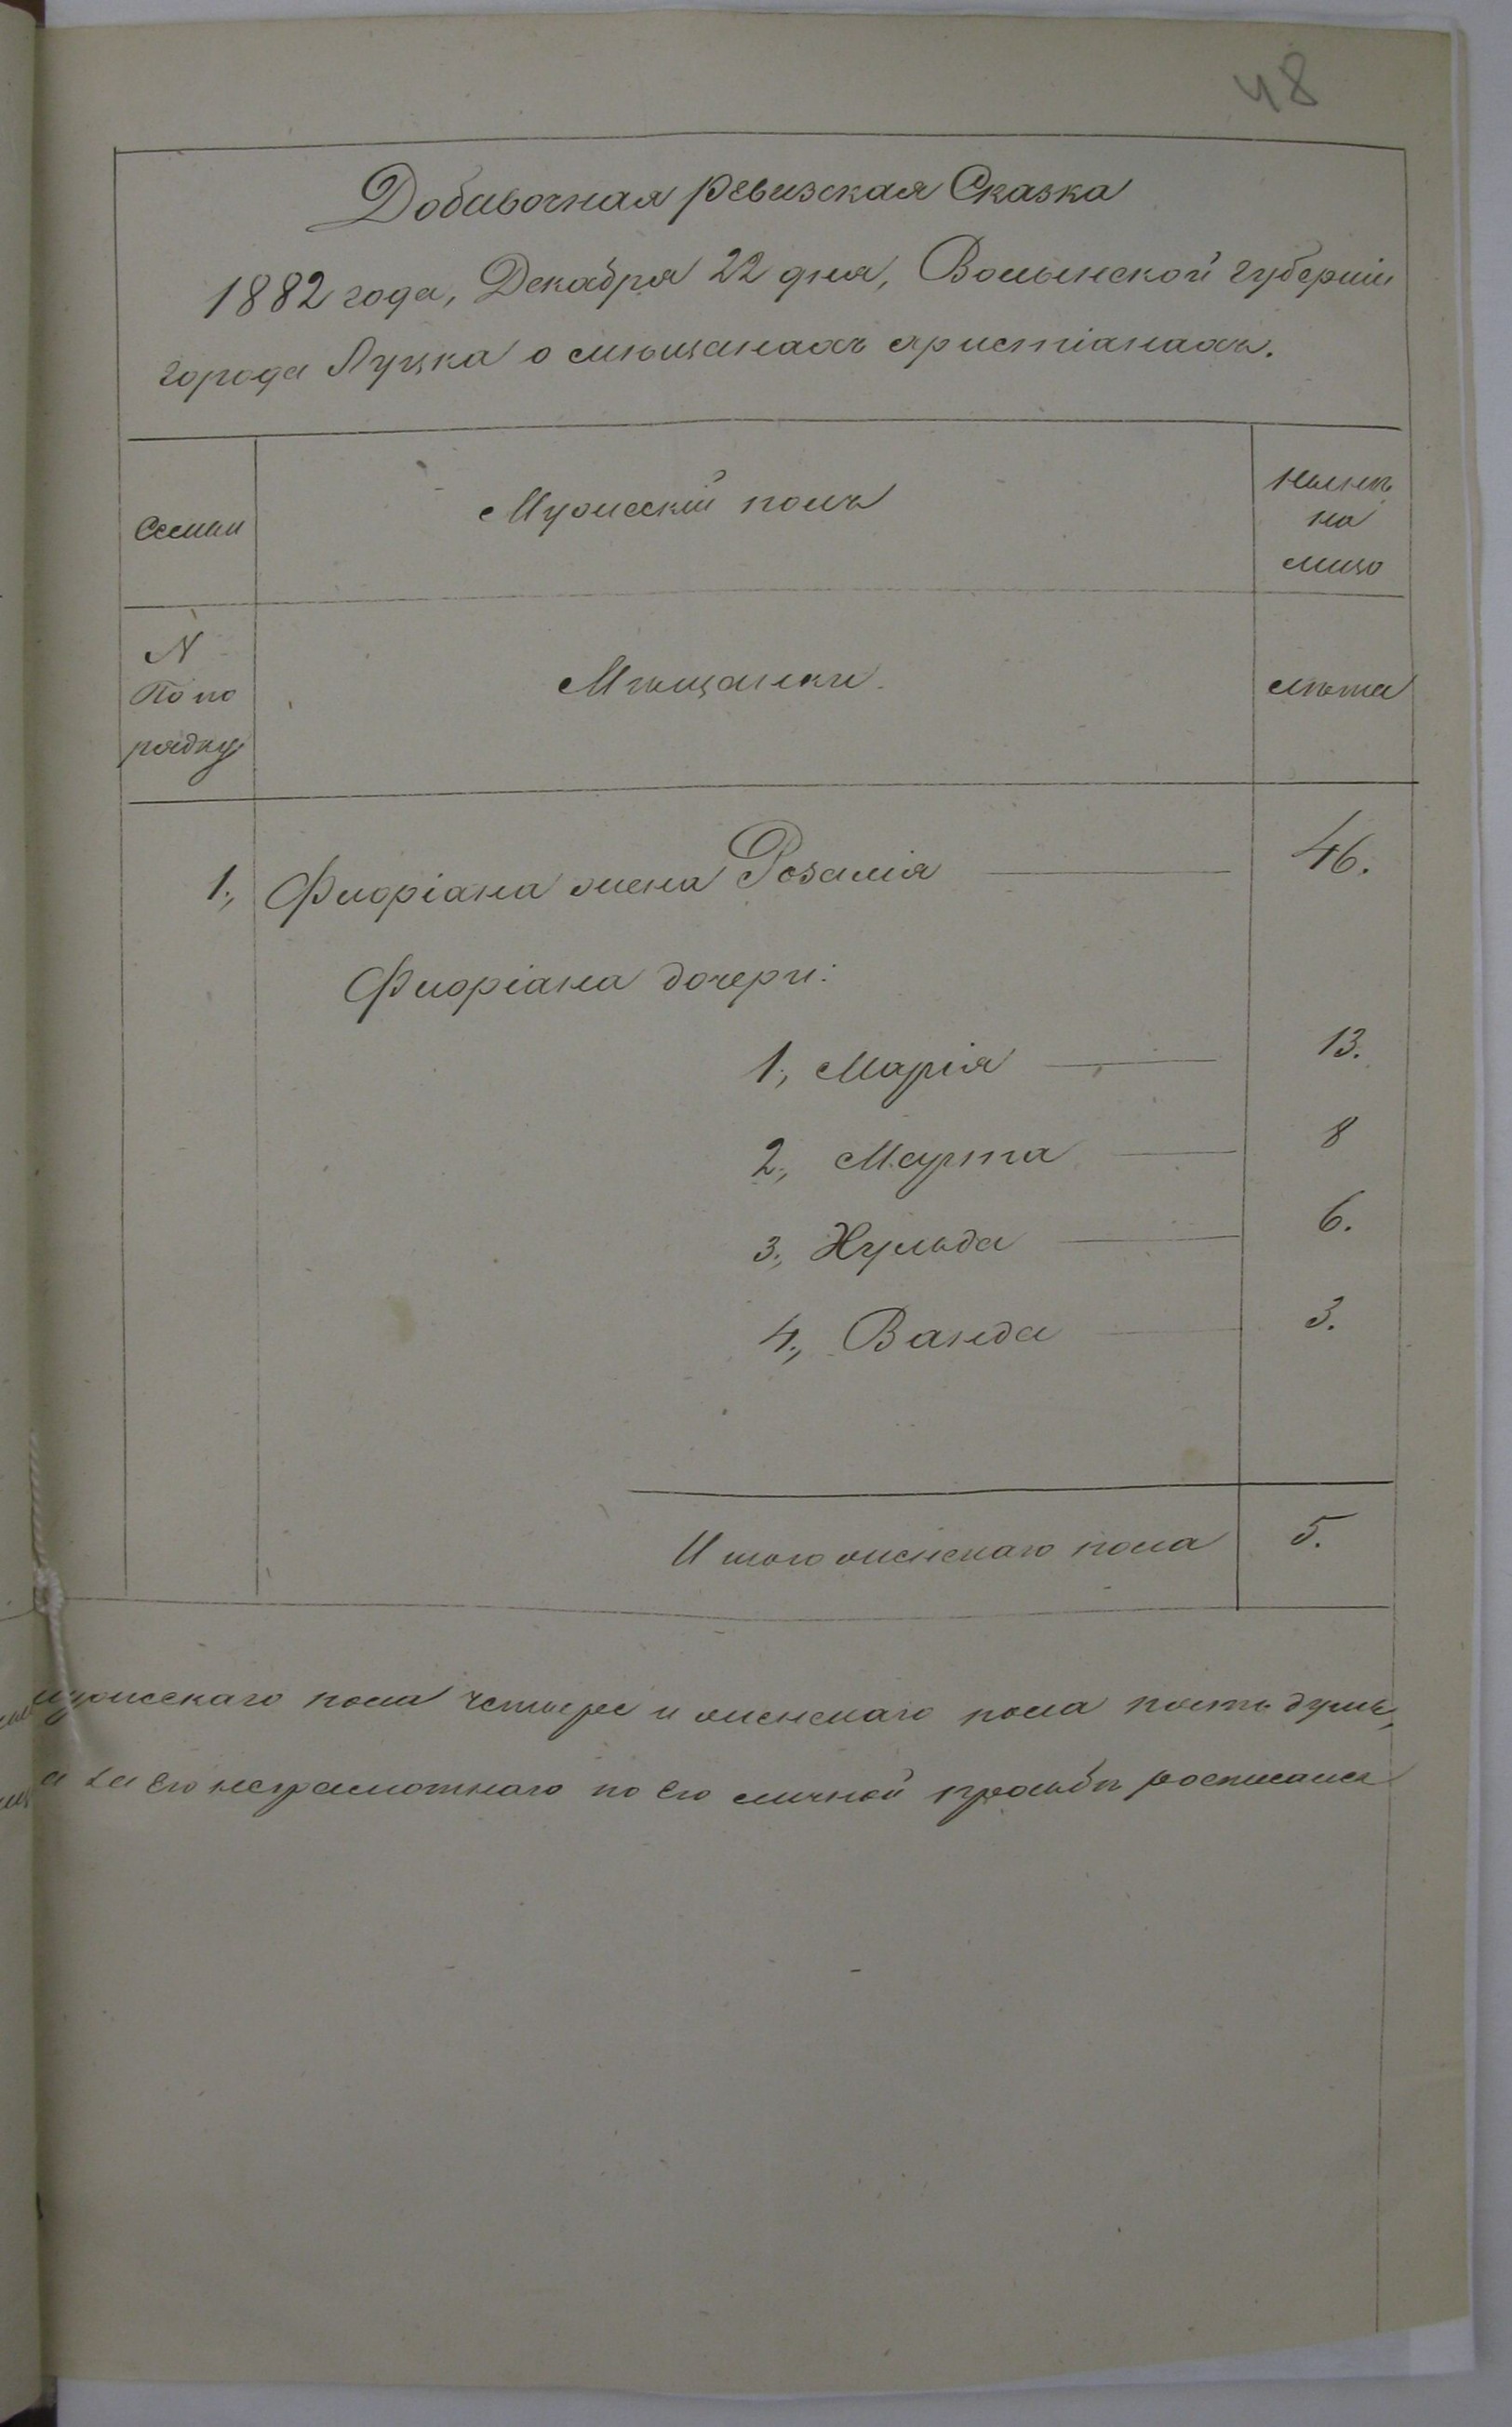 48
Добавочная Ревизская Сказка
1882 года, Декабря 22 дня, Волынской губернiи
города Луцка о мѣщанахъ христiанахъ.
Семьи
Мужескiй полъ
Нынѣ
на
лицо
N
По по
рядку
Мѣщанки.
лѣта
1., Флорiана жена Розалiя 46.
Флорiана дочери:
1., Марiя 13.
2., Марта 8
3., Хульда 6.
4., Ванда 3.
Итого женскаго пола 5.
мужескаго пола четыре и женскаго пола пять душъ,
а за его неграмотнаго по его личной просьбѣ росписался